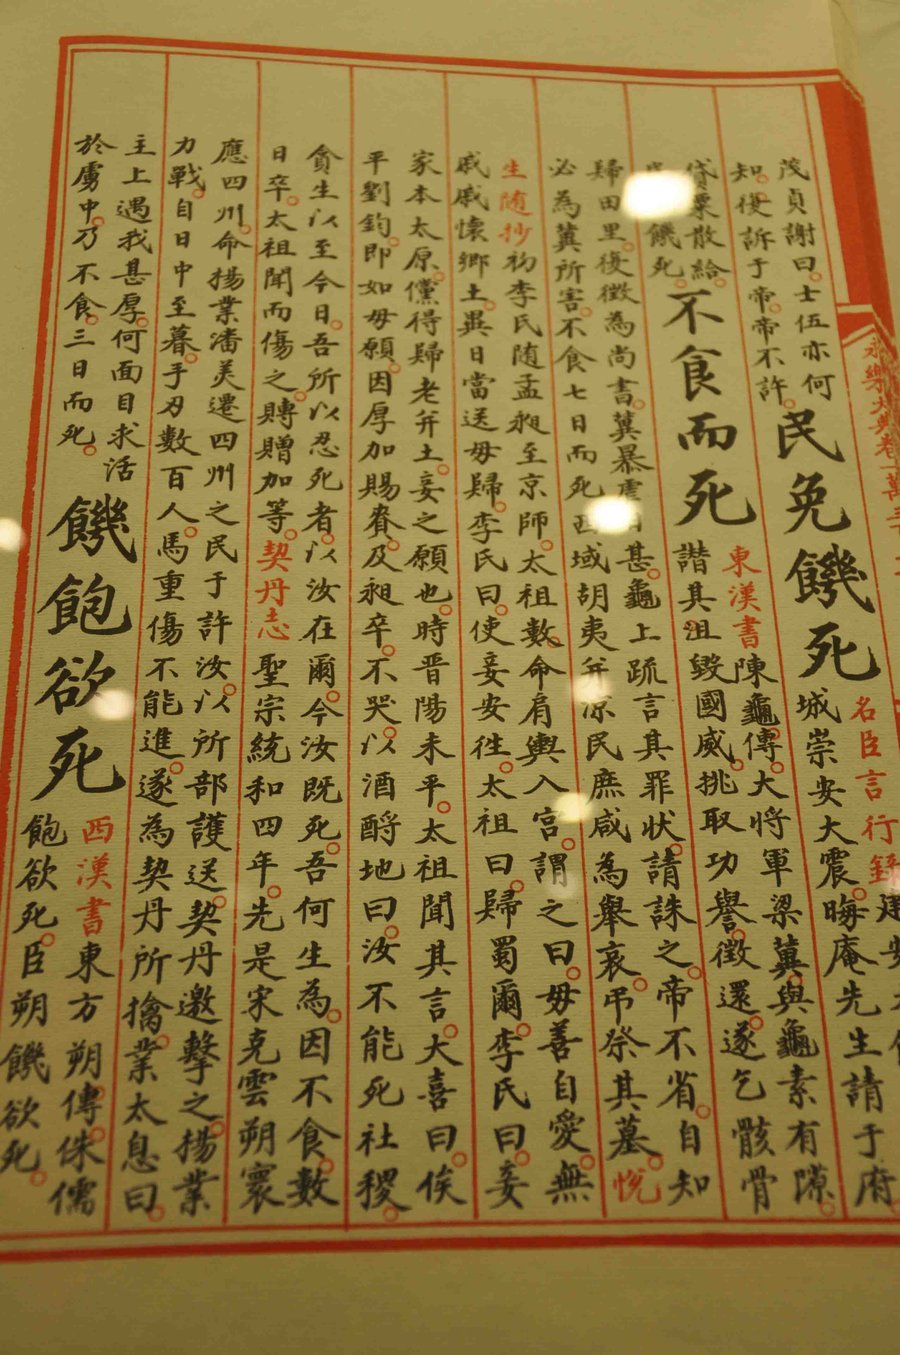 永樂大典卷一萬三
茂貞謝曰士伍亦何
知復訴于帝帝不許
民免饑死
名臣言行錄建安
城崇安大震晦庵先生請于府
貸粟散給
饑死
不食而死
東漢書陳龜傳大將軍梁冀與龜素有隙
譖其沮毀國威挑取功譽徵還遂乞骸骨
歸田里復徵為尚書冀暴虐甚龜上疏言其罪狀請誅之帝不省自知
必為冀所害不食七日而死西域胡夷并涼民庶咸為舉哀弔祭其墓悅
生随抄初李氏随孟昶至京師太祖數命肩輿入宮謂之曰毋善自愛無
戚戚懷鄉土異日當送毋歸李氏曰使妾安徃太祖曰歸蜀爾李氏曰妾
家本太原儻得歸老并土妾之願也時晋陽未平太祖聞其言大喜曰俟
平劉鈞即如毋願因厚加賜賚及昶卒不哭以酒酹地曰汝不能死社稷
貪生以至今日吾所以忍死者以汝在爾今汝既死吾何生為因不食數
日卒太祖聞而傷之賻贈加等契丹志聖宗統和四年先是宋克雲朔寰
應四州命揚業潘美遷四州之民于許汝以所部護送契丹邀擊之揚業
力戰自日中至暮手刃數百人馬重傷不能進遂為契丹所擒業太息曰
主上遇我甚厚何面目求活
於虜中乃不食三日而死
饑飽欲死
西漢書東方朔傳侏儒
飽欲死臣朔饑欲死